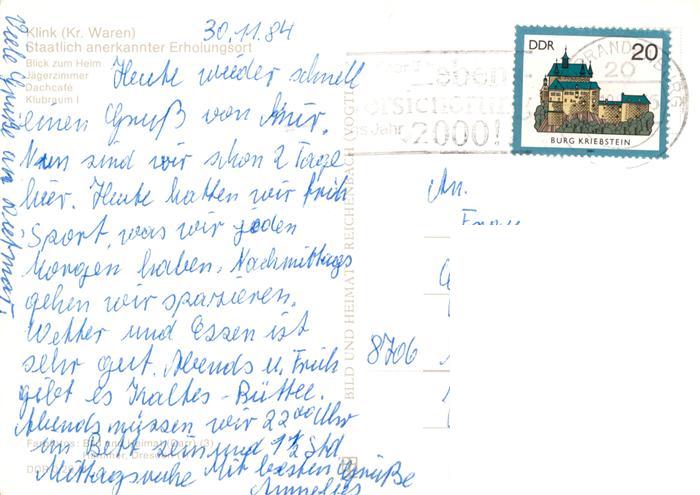 Klink (Kr. Waren)
Staatlich anerkannter Erholungsort
Blick zum Heim
Jägerzimmer
Dachcafé
Klubraum I
30.11.84
Heute wieder schnell
einen Gruß von mir.
Nun sind wir schon 2 Tage
hier. Heute hatten wir früh
Sport, was wir jeden
Morgen haben. Nachmittags
gehen wir spazieren.
Wetter und Essen ist
sehr gut. Abends u. Früh
gibt es Kaltes-Büttee.
Abends müssen wir 22⁰⁰ Uhr
im Bett sein und 1½ Std
Mittagsruhe Mit besten Grüße
Annelies
Viele Grüße an Dietmar,
Bild und Heimat (3)
Dresden
BILD UND HEIMAT REICHENBACH (VOGTL)
DDR 20
BURG KRIEBSTEIN
BRAND
20
Leben
ersicherung
Jahr
2000!
An.
8706